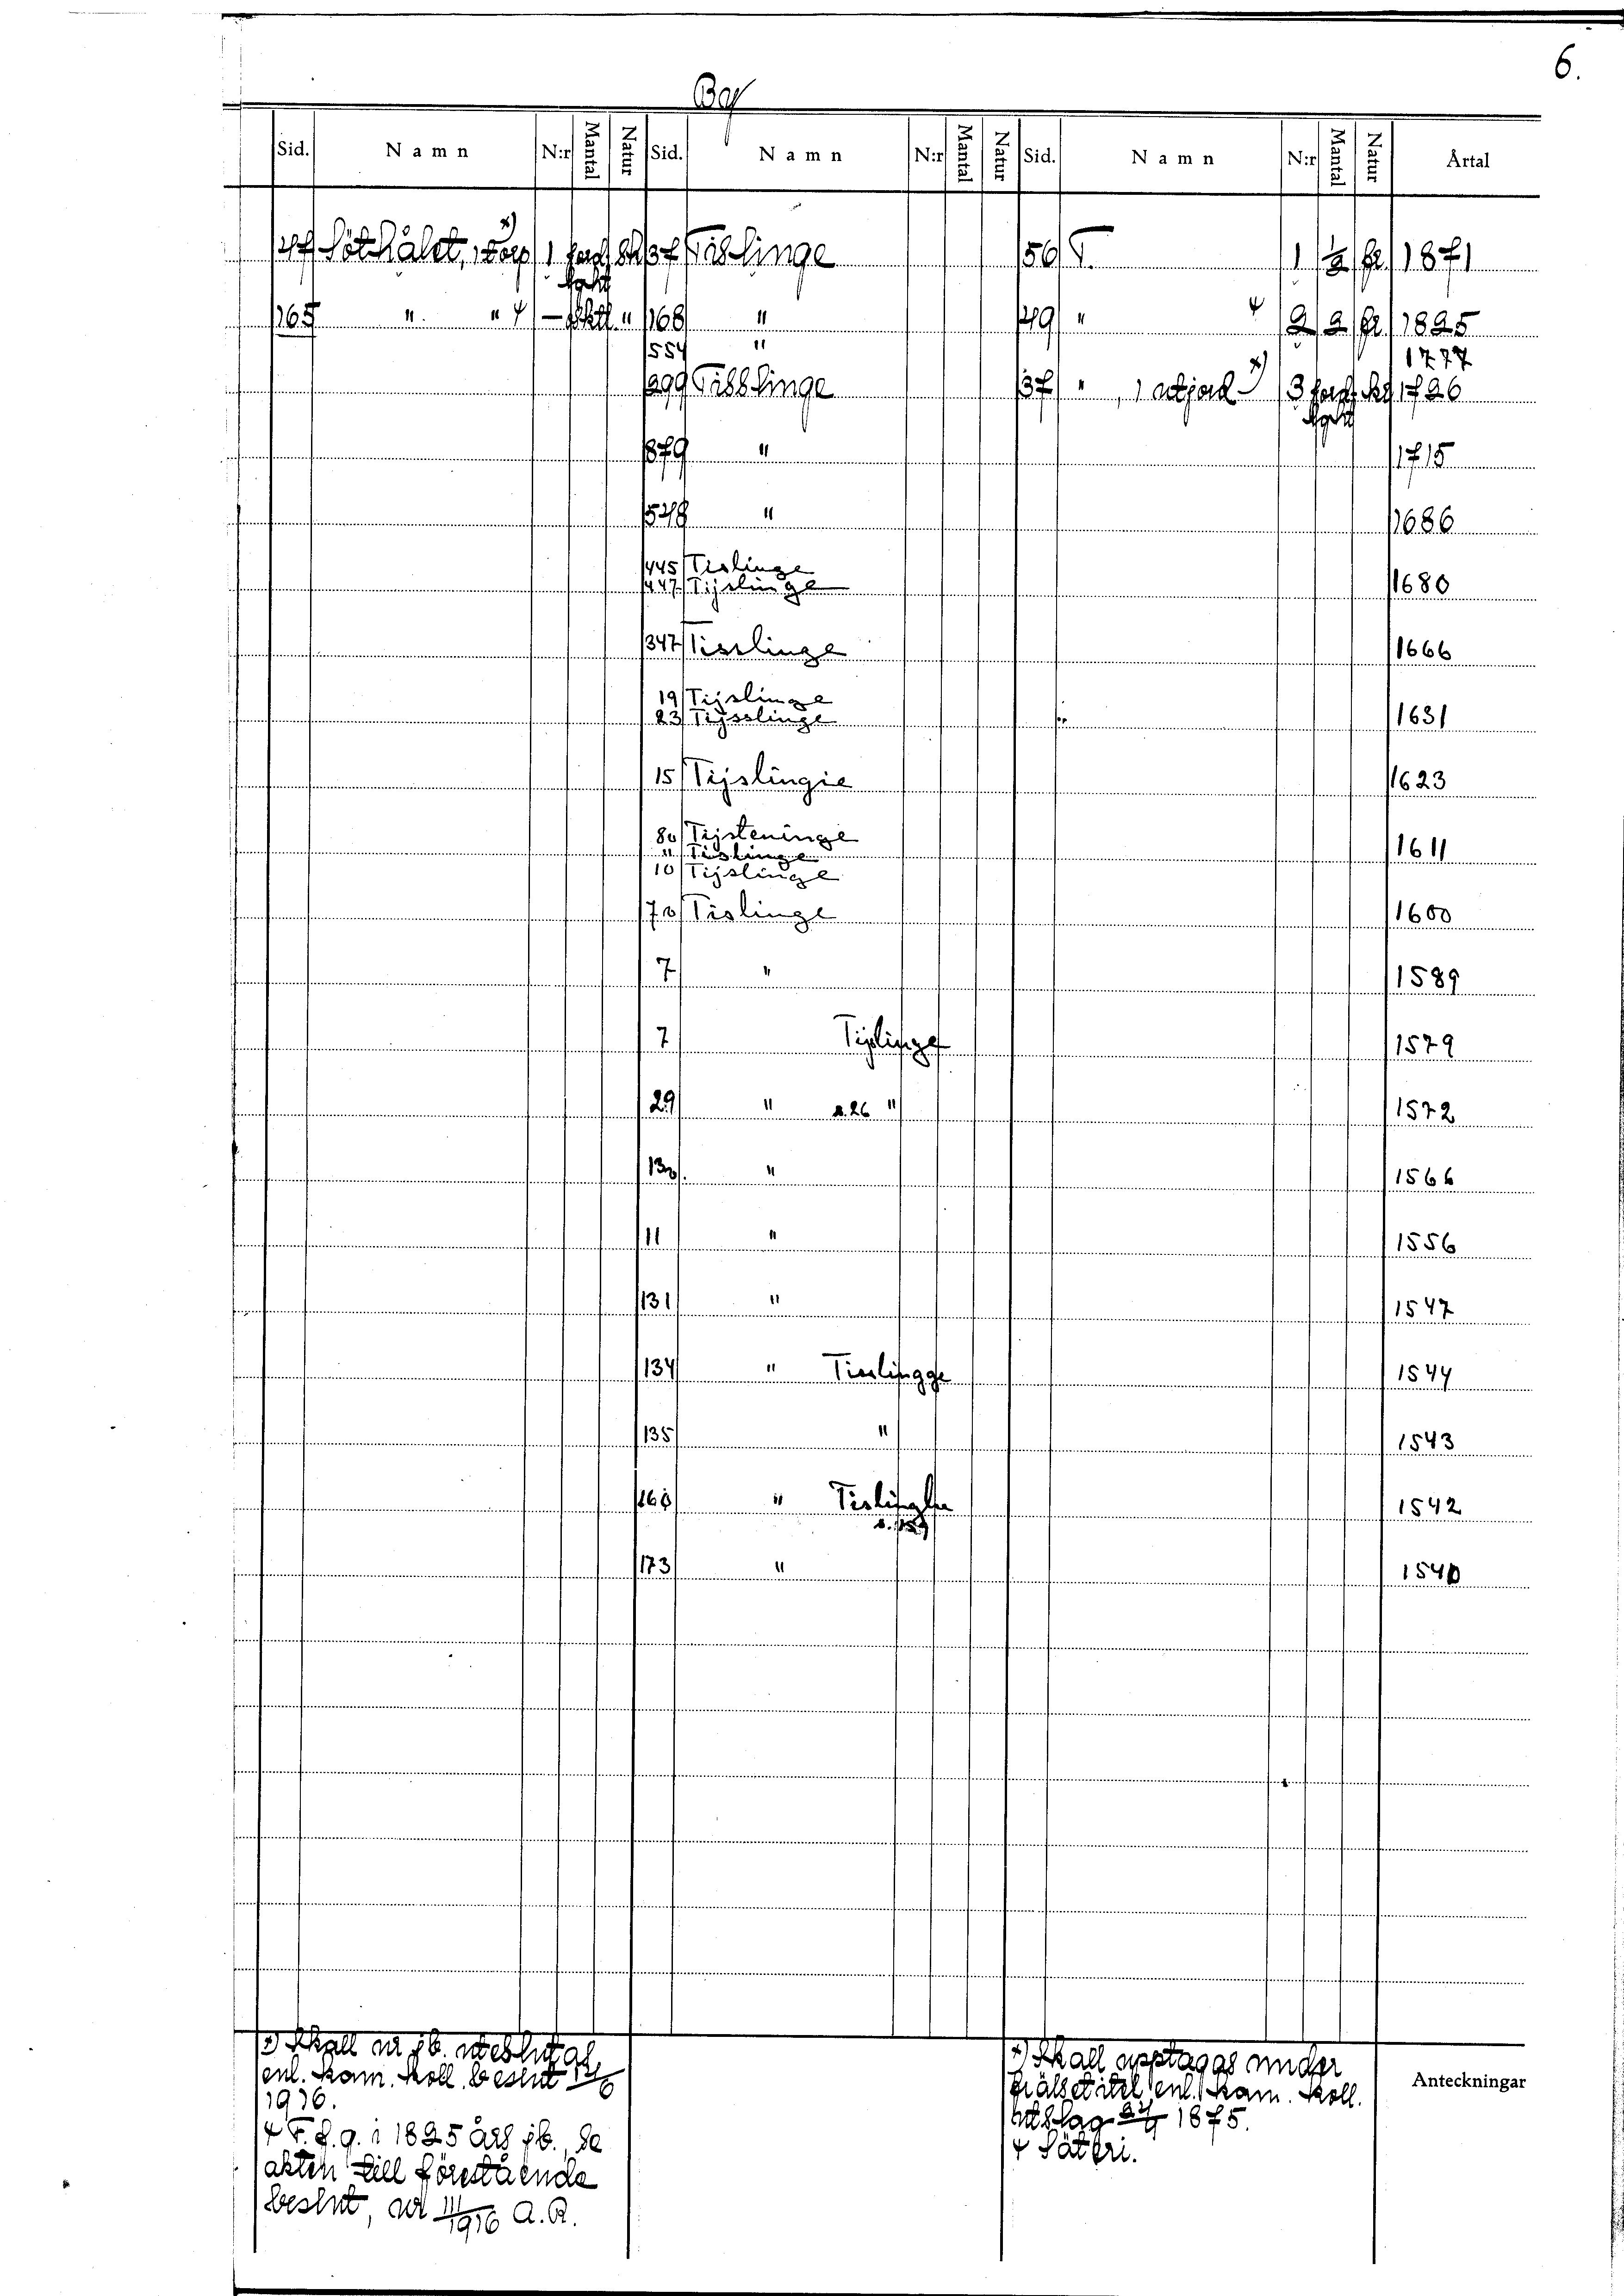 6.
By
Sid. Namn N:r Mantal Natur Sid. Namn N:r Mantal Natur Sid. Namn N:r Mantal Natur Årtal
47 Söthålet, 1 torp x) 1 Sk 37 Tisslinge 56 T. 1 1/2 fr. 1871
165 " " 4 — " 168 " 49 " 4 2 2 fr. 1825
554 " 1777
299 Tisslinge 37 " , 1 utjord x) 3 1726
879 " 1715
548 " 1686
445 Tislinge
447 Tijslinge 1680
347 Tisslinge 1666
19 Tijslinge
23 Tijsslinge 1631
15 Tijslingie 1623
80 Tijsteninge
" Tislinge 1611
10 Tijslinge
70 Tislinge 1600
7 " 1589
7 Tijslinge 1579
29 " s. 26 " 1572
130. " 1566
11 " 1556
131 " 1547
134 " Tisslingge 1544
135 " 1543
160 " Tislinghe 1542
s. 159
173 " 1540
x) Skall ur jb. uteslutas
enl. kam. koll. beslut 14/6
1916.
4 F. f. g. i 1825 års jb., se
akten till förestående
beslut, nr 111/1916 A.R.
x) Skall upptagas under
frälsetitel enl. kam. koll.
utslag 24/9 1875.
4 Säteri.
Anteckningar